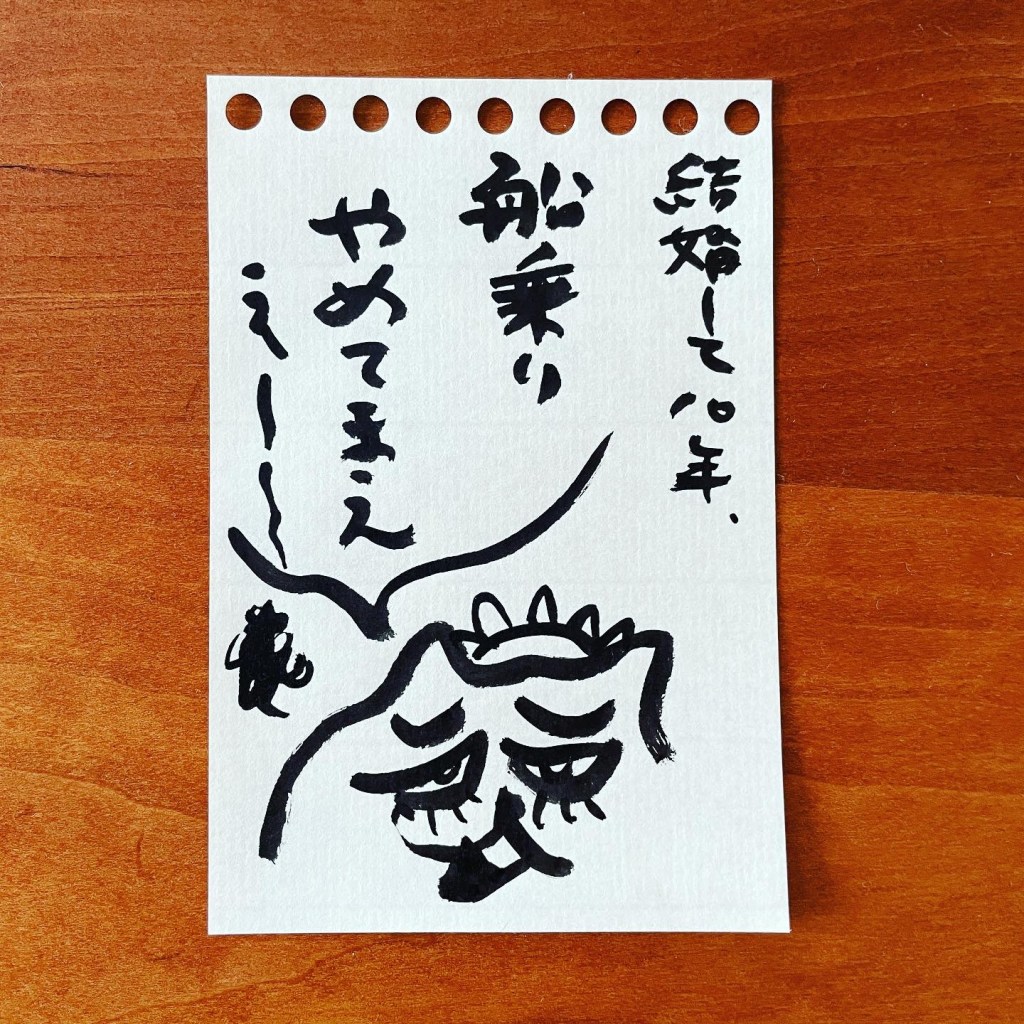 結婚して10年.
船乗り
やめてまえ
えー〜